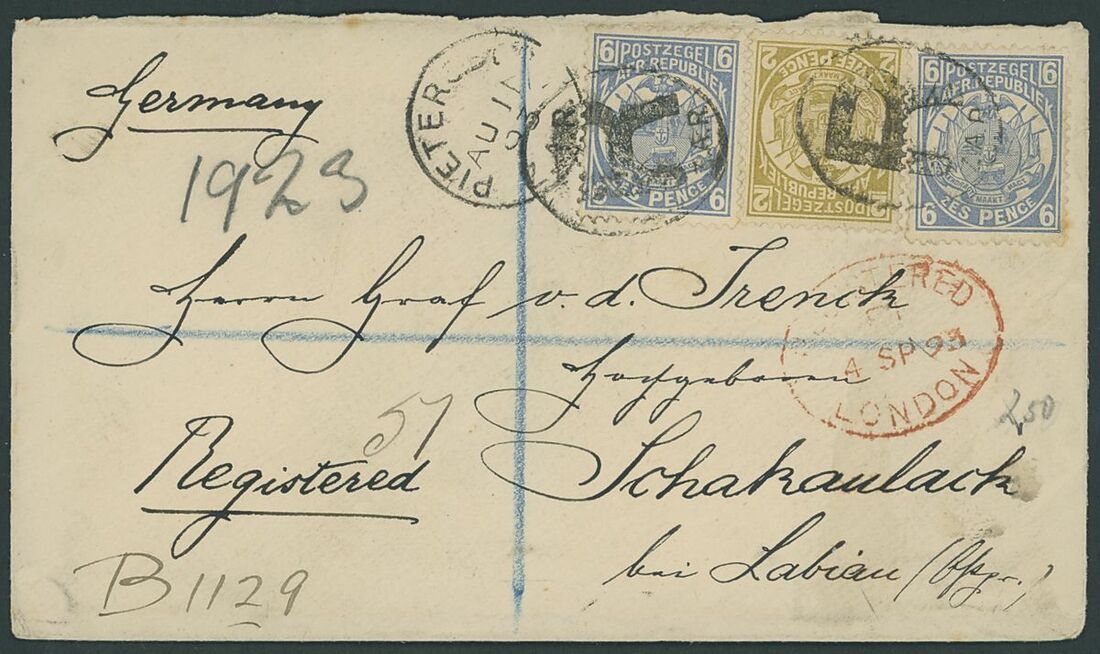 Germany
1923
PIETERSBU
AU 1
93
Z.A.R.
6 POSTZEGEL 6
Z. AFR. REPUBLIEK
6 ZES PENCE 6
2 POSTZEGEL 2
Z. AFR. REPUBLIEK
2 TWEE PENCE 2
6 POSTZEGEL 6
Z. AFR. REPUBLIEK
6 ZES PENCE 6
Herrn Graf v. d. Trenck
Hochgeboren
REGISTERED
4 SP 93
LONDON
2,50
57
Registered
Schakaulack
bei Labiau (Ostpr.)
B1129